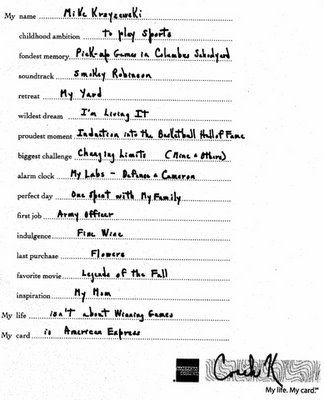 My name Mike Krzyzewski
childhood ambition to play sports
fondest memory Pick-up Games in Columbus Schoolyard
soundtrack Smokey Robinson
retreat My Yard
wildest dream I'm Living It
proudest moment Induction into the Basketball Hall of Fame
biggest challenge Changing Limits (Mine & Others)
alarm clock My Labs - Defense & Cameron
perfect day One Spent with My Family
first job Army Officer
indulgence Fine Wine
last purchase Flowers
favorite movie Legends of the Fall
inspiration My Mom
My life isn't about Winning Games
My card is American Express
Coach K
My life. My card.